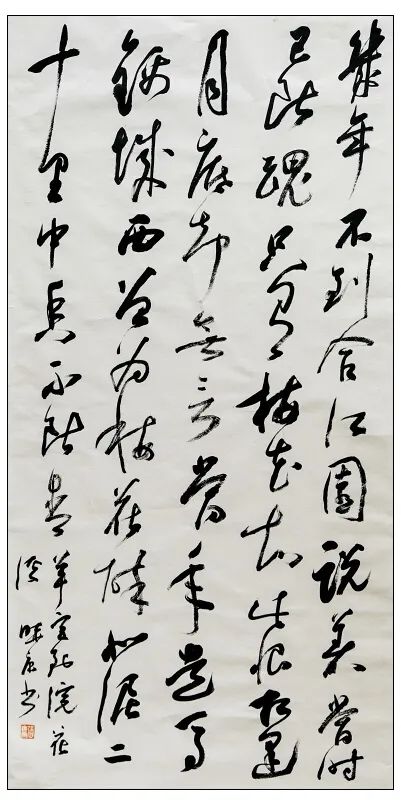 幾年不到合江園說著當時
已斷魂只有梅花知此恨相逢
月底却無言當年走馬
錦城西曾為梅花醉似泥二
十里中香不斷青
羊宮到浣花
溪 書